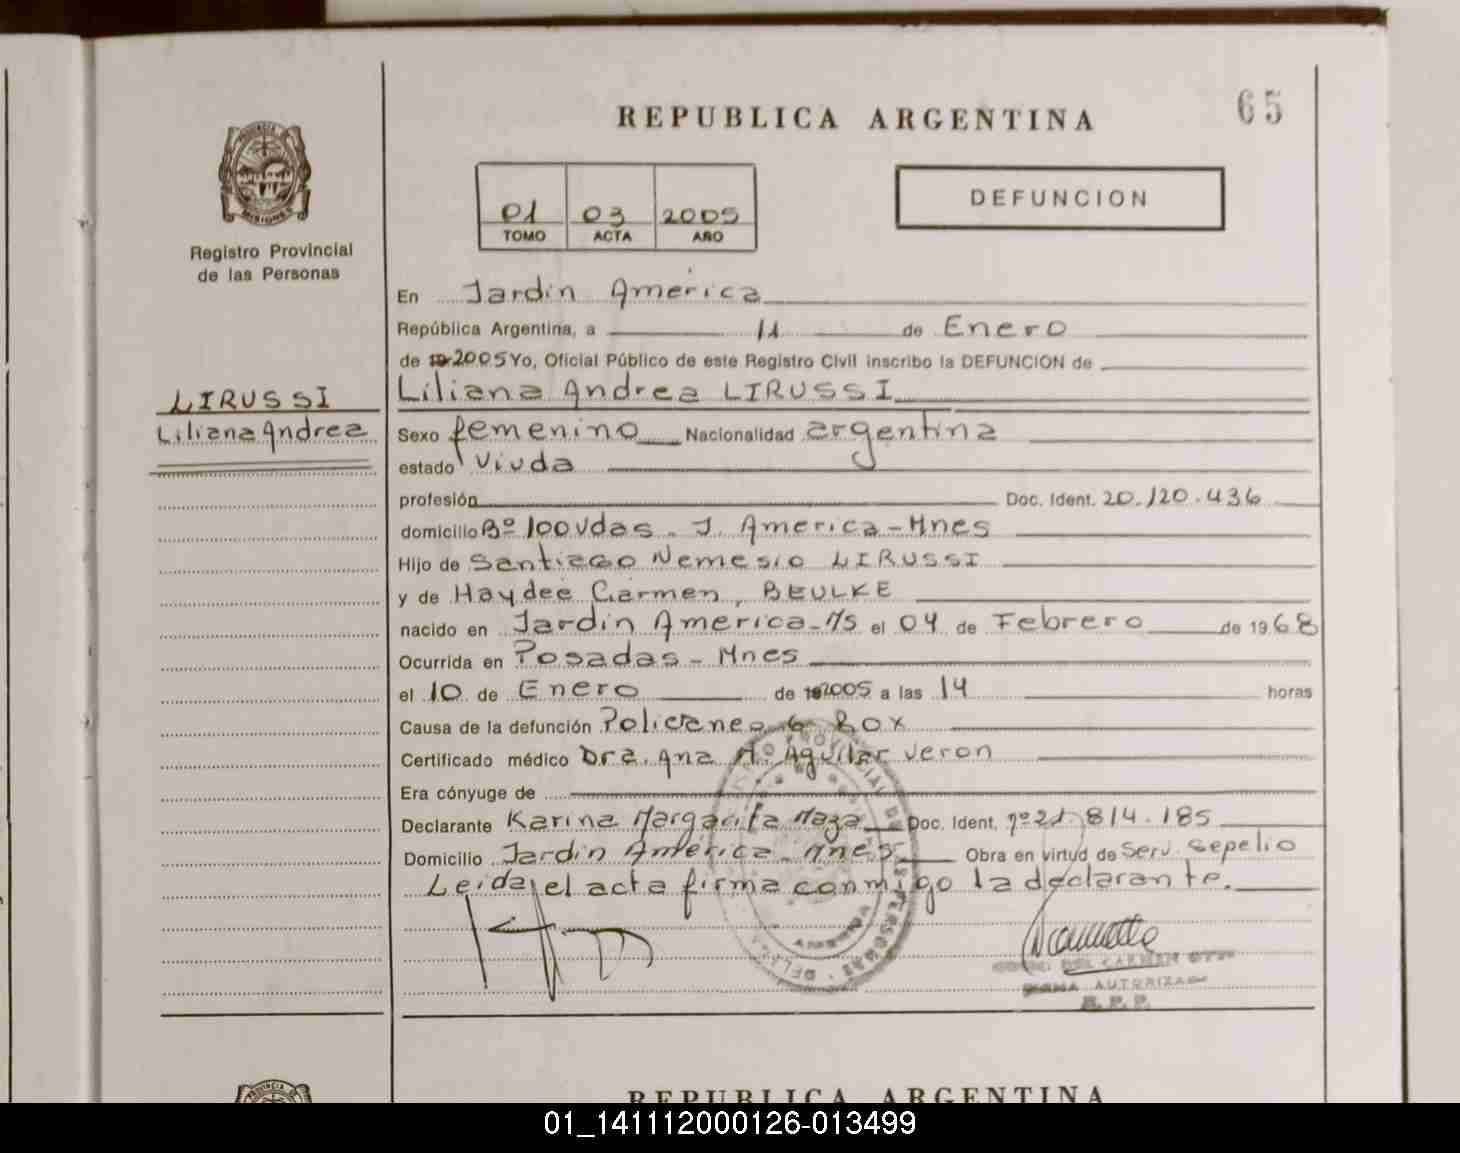 65
REPUBLICA ARGENTINA
PROVINCIA DE
MISIONES
Registro Provincial
de las Personas
01 03 2005
TOMO ACTA AÑO
DEFUNCION
En Jardín América
República Argentina, a 11 de Enero
de 2005 Yo, Oficial Público de este Registro Civil inscribo la DEFUNCION de
LIRUSSI
Liliana Andrea LIRUSSI
Liliana Andrea
Sexo femenino Nacionalidad argentina
estado Viuda
profesión Doc. Ident. 20.120.436
domicilio Bº 100 Vdas - J. América - Mnes
Hijo de Santiago Nemesio LIRUSSI
y de Haydeé Carmen, BEULKE
nacido en Jardín América - Ms el 04 de Febrero de 1968
Ocurrida en Posadas - Mnes
el 10 de Enero de 2005 a las 14 horas
Causa de la defunción
Certificado médico Dra. Ana M. Aguilar Veron
Era cónyuge de
Declarante Karina Margarita Maza Doc. Ident. nº 21.814.185
Domicilio Jardín América - Mnes Obra en virtud de Serv. Sepelio
Leída el acta firma conmigo la declarante.
DEL CARMEN
FIRMA AUTORIZADA
R. P. P.
REPUBLICA ARGENTINA
01_141112000126-013499